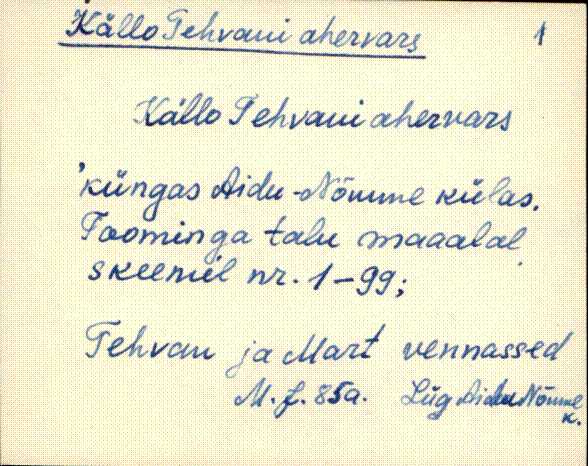 Källo Tehvani ahervars 1
Källo Tehvani ahervars
'küngas Aidu-Nõmme külas.
Toominga talu maaalal
skeemil nr. 1-99;
Tehvan ja Mart vennassed
M. J. 85a. Lüg Aidu Nõmme
k.